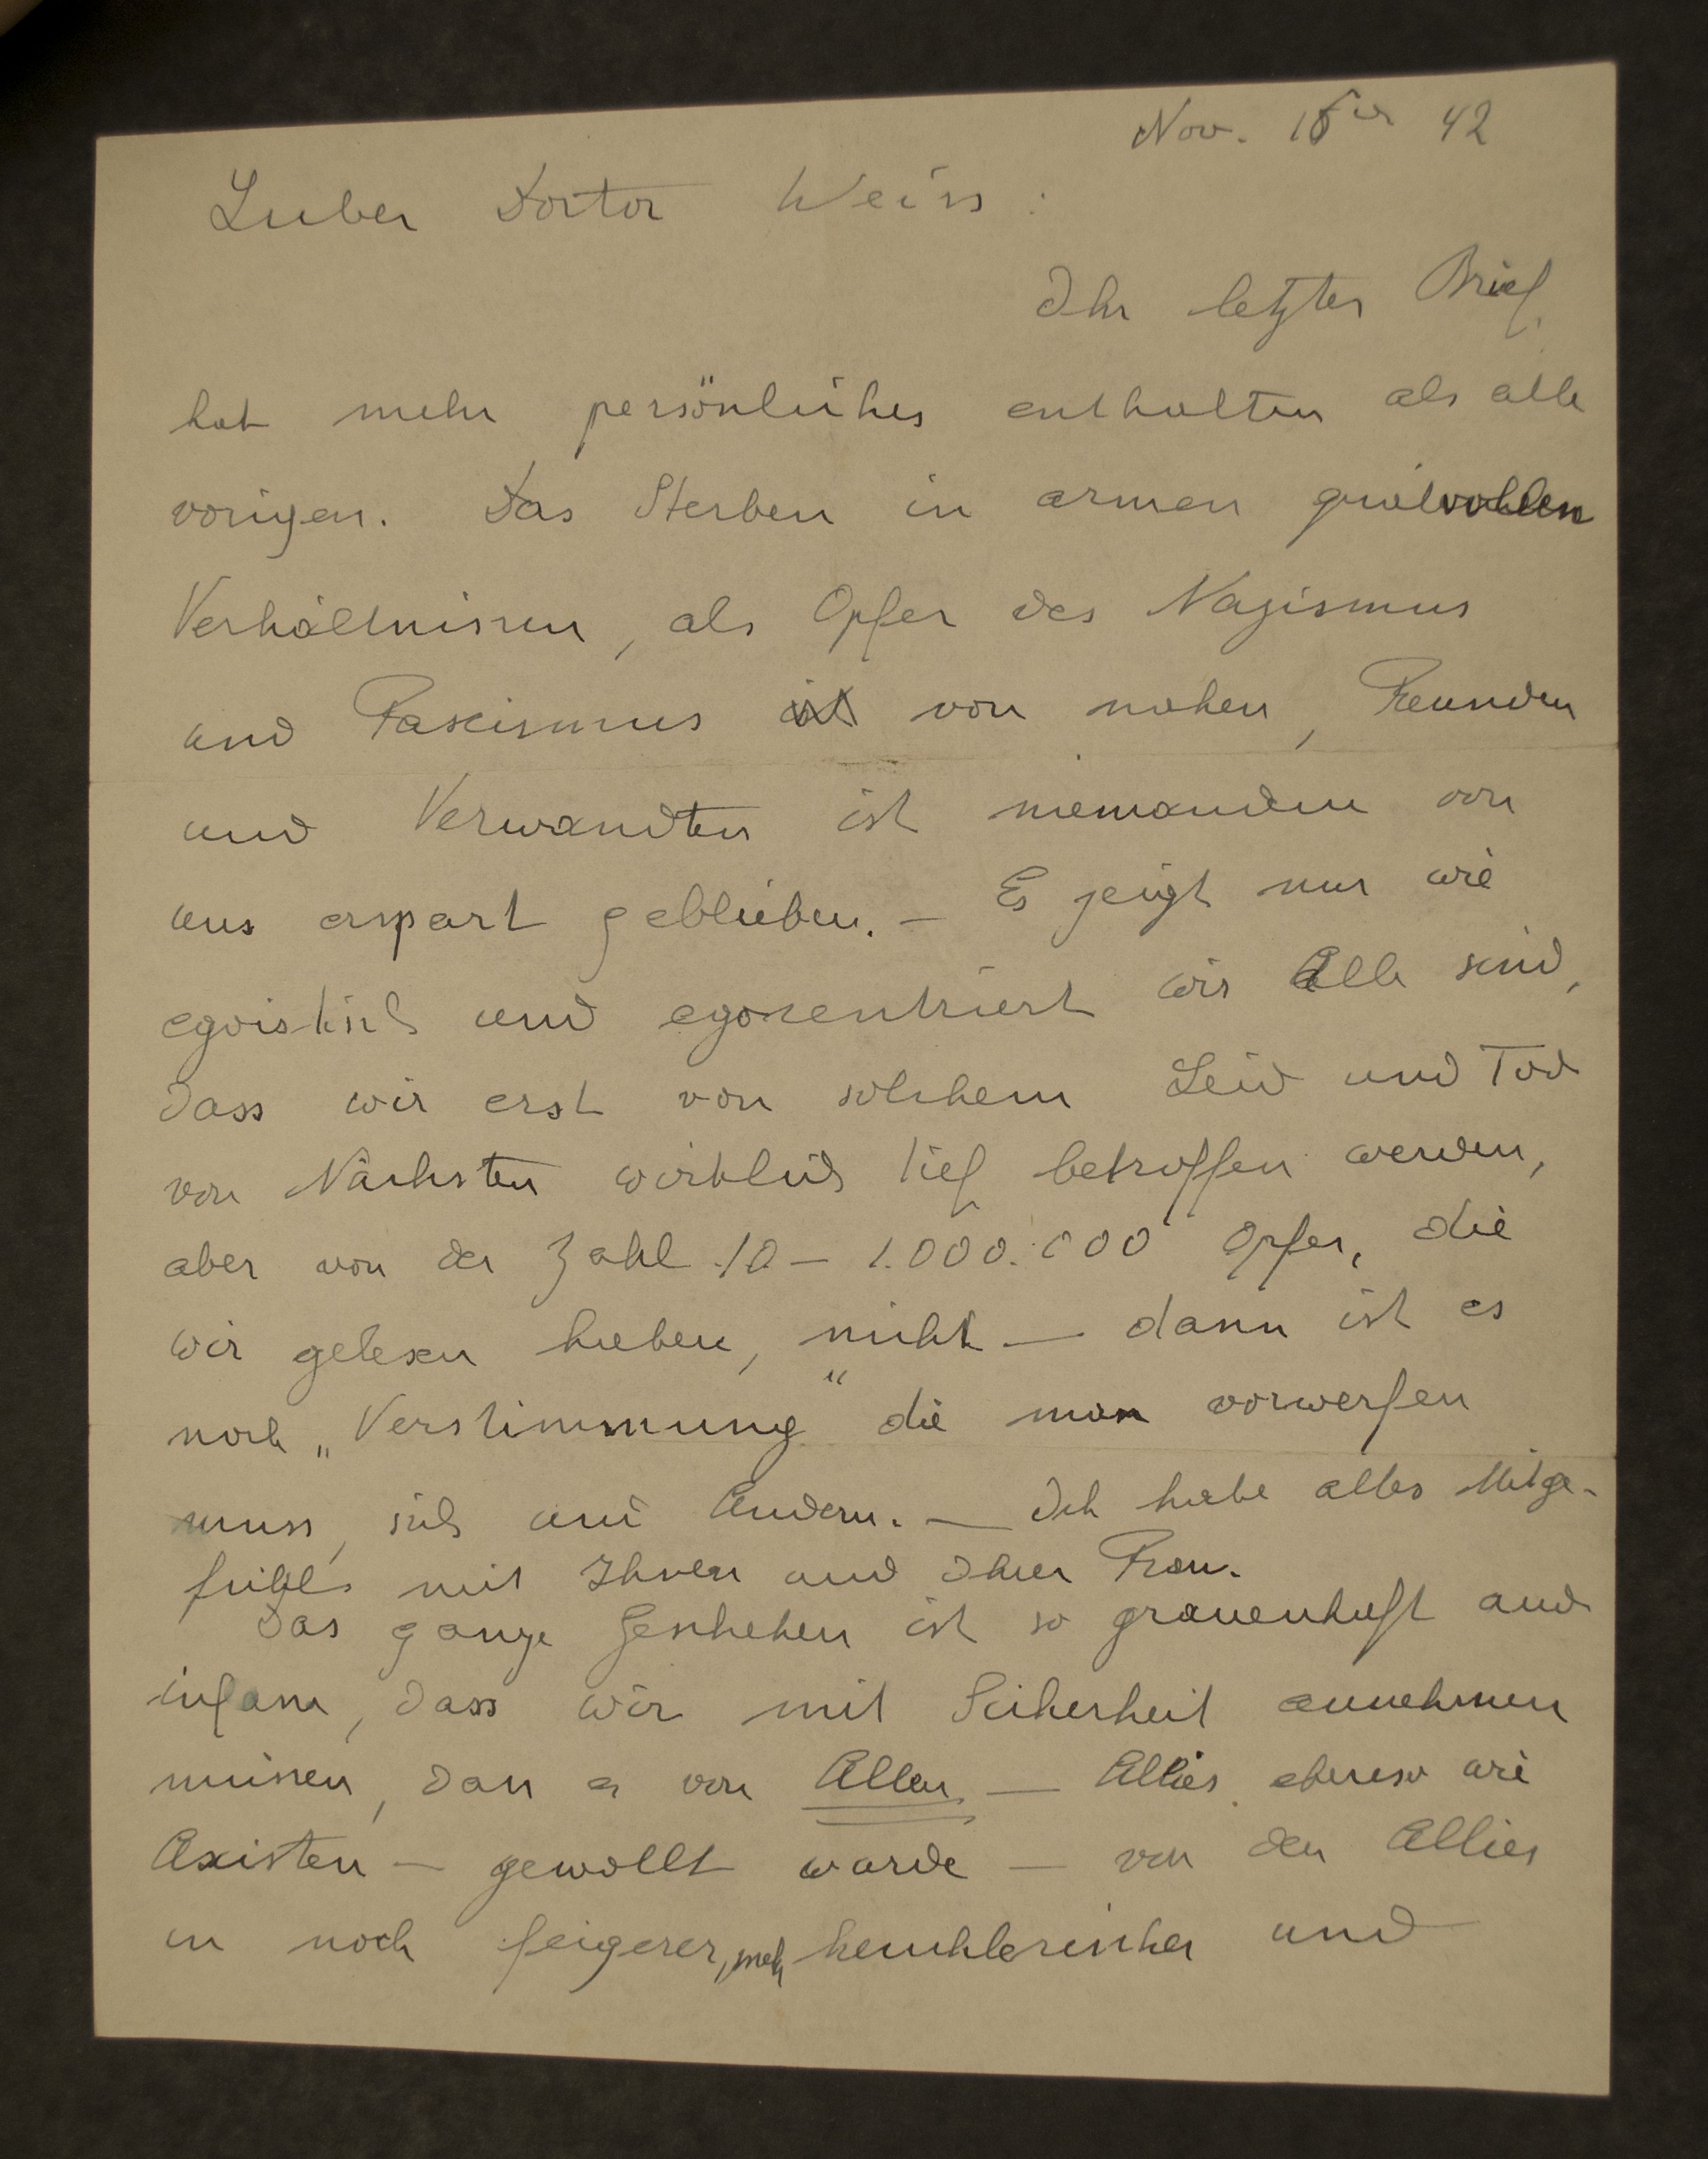 Nov. 42
Lieber Doctor Weiss :
Ihr letzter Brief
hat mehr persönliches enthalten als alle
vorigen. Das Sterben in armen qualvollen
Verhältnissen, als Opfer des Nazismus
und Fascismus ist von nahen, Freunden
und Verwandten ist niemandem von
uns erspart geblieben. — Es zeigt nur wie
egoistisch und egozentriert wir Alle sind,
dass wir erst von solchem Leid und Tod
von Nächsten wirklich tief betroffen werden,
aber von der Zahl 10 — 1.000.000 Opfer, die
wir gelesen haben, nicht — dann ist es
noch „Verstimmung“ die man vorwerfen
muss, sich und Andern. — Ich habe alles Mitge-
fühl mit Ihnen und Ihrer Frau.
Das ganze Geschehen ist so grauenhaft und
infam, dass wir mit Sicherheit annehmen
müssen, dass es von Allen — Allies ebenso wie
Axisten — gewollt wurde — von den Allies
in noch feigerer, mehr heuchlerischer und